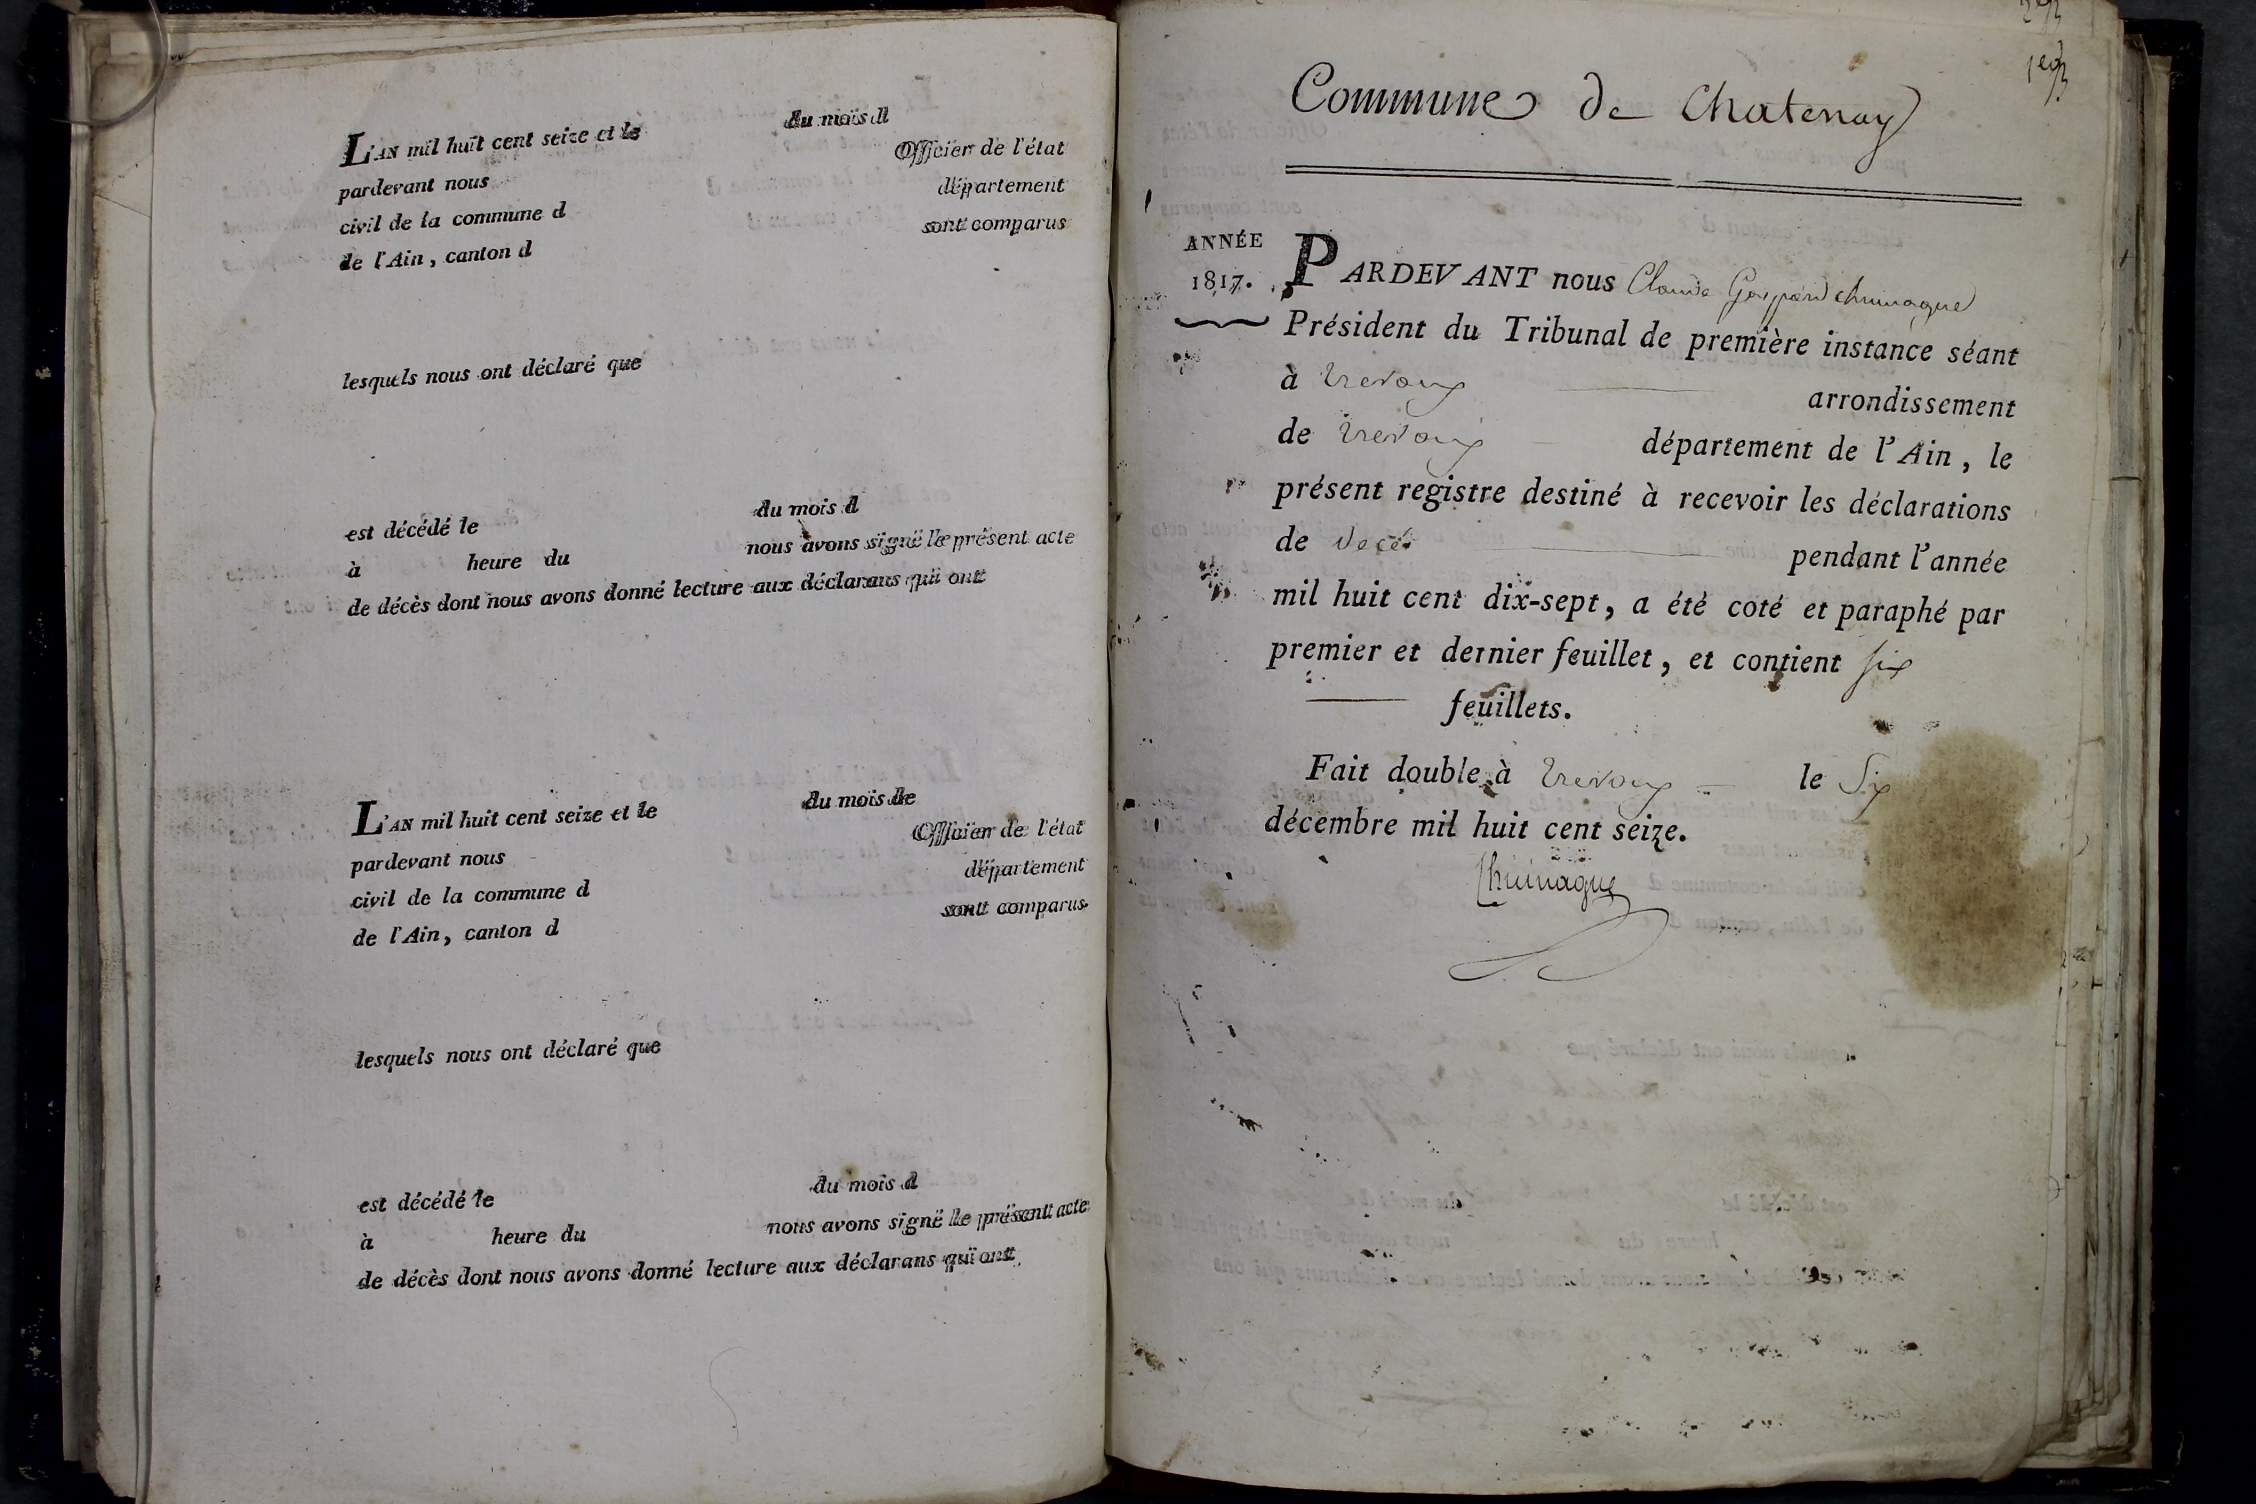 L'AN mil huit cent seize et le du mois d
pardevant nous Officier de l'état
civil de la commune d département
de l'Ain, canton d sont comparus
lesquels nous ont déclaré que
est décédé le du mois d
à heure du nous avons signé le présent acte
de décès dont nous avons donné lecture aux déclarans qui ont
L'AN mil huit cent seize et le du mois de
pardevant nous Officier de l'état
civil de la commune d département
de l'Ain, canton d sont comparus
lesquels nous ont déclaré que
est décédé le du mois d
à heure du nous avons signé le présent acte
de décès dont nous avons donné lecture aux déclarans qui ont
Commune de Chatenay
ANNÉE
1817.
PARDEVANT nous Claude Gaspard
Président du Tribunal de première instance séant
à trevoux arrondissement
de trevoux département de l'Ain, le
présent registre destiné à recevoir les déclarations
de décés pendant l'année
mil huit cent dix-sept, a été coté et paraphé par
premier et dernier feuillet, et contient six
feuillets.
Fait double à trevoux le Six
décembre mil huit cent seize.